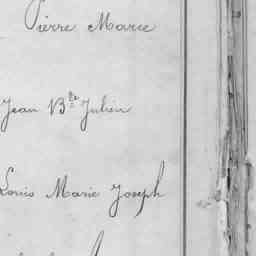 Pierre Marie
Jean Bte Julien
Louis Marie Joseph